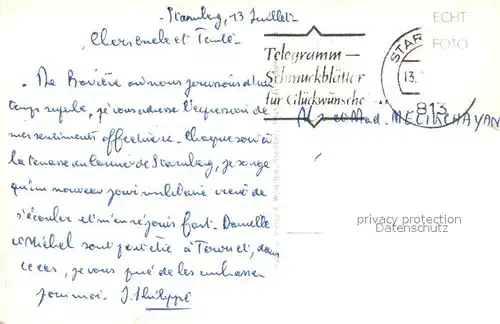 Starnberg, 13 Juillet
Chers oncle et Tante.
De Bavière où nous jouissons d'un
temps superbe, je vous adresse l'expression de
mes sentiments affectueux. Chaque soir à
la terrasse du casino de Starnberg, je songe
qu'un nouveau jour militaire vient de
s'écouler et m'en réjouis fort. Danielle
et Michel sont peut être à Tervuet, dans
ce cas, je vous prie de les embrasser
pour moi. J. Philippe
Telegramm –
Schmuckblätter
für Glückwünsche ...
STAR
13.
813
ECHT
FOTO
Mr et Mad. MECIKCHAYAN
privacy protection
Datenschutz